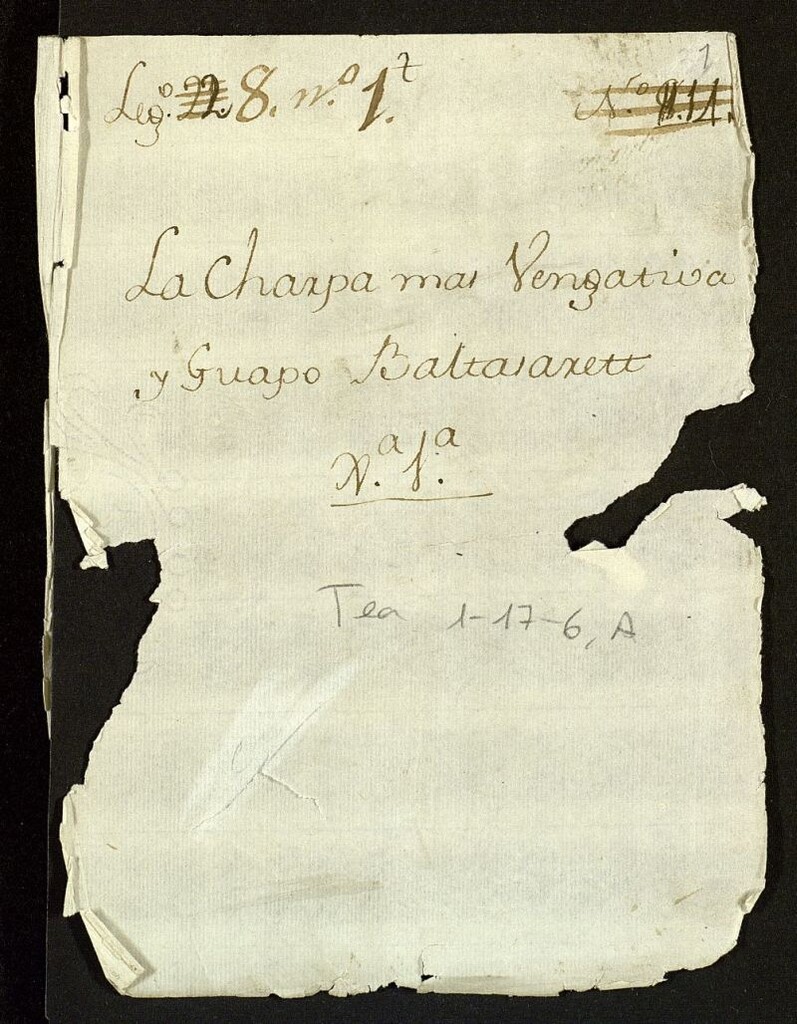 Leg.º 22. 8. n.º 1.
N.ro 11.
La Charpa mas Vengativa
y Guapo Baltasarett
Xª 1.ª
Tea 1-17-6, A